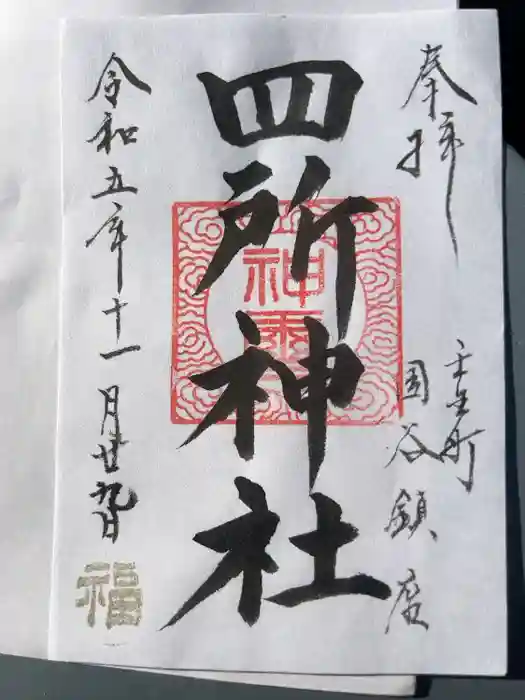 奉拝
壬生町
国谷鎮座
四所神社
令和五年十一月廿九日
福